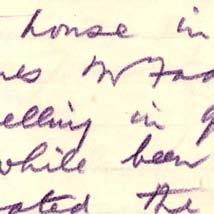 house in
es Mr Fad
elling in g
while been
ated the